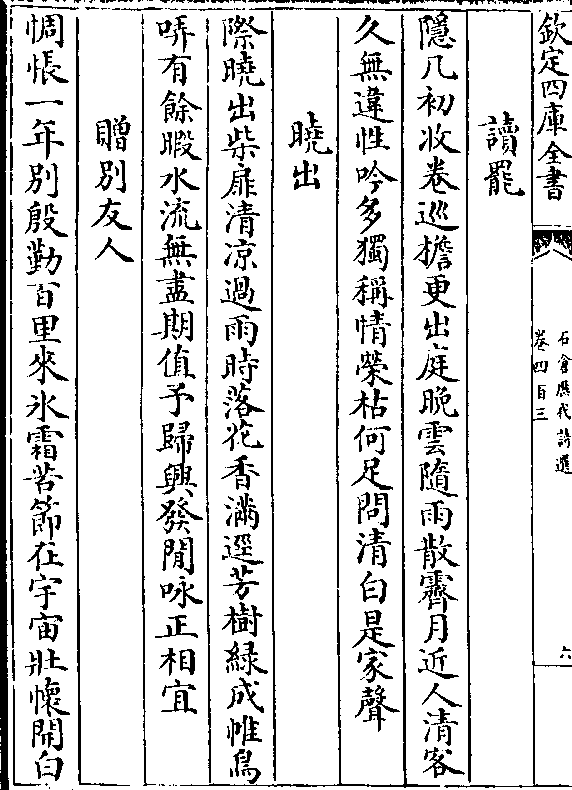 欽定四庫全書
石倉歷代詩選
卷四百三
六
讀罷
隱几初收卷巡擔更出庭晚雲隨雨散霽月近人清客
久無違性吟多獨稱情榮枯何足問清白是家聲
曉出
際曉出柴扉清凉過雨時落花香滿逕芳樹緑成帷鳥
哢有餘暇水流無盡期值予歸興發閒咏正相宜
贈別友人
惆悵一年別殷勤百里來氷霜苦節在宇宙壯懷開白